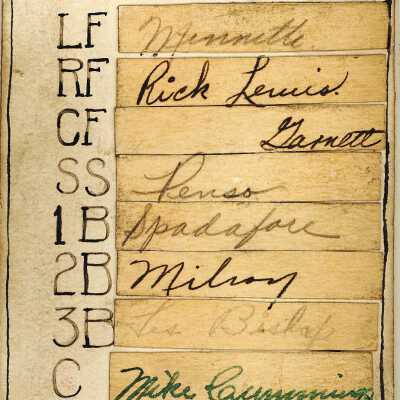 LF Minnette.
RF Rick Lewis.
CF Garnett
SS Penso
1B Spadafore
2B Milroy
3B Les Bishop
C Mike Cummings